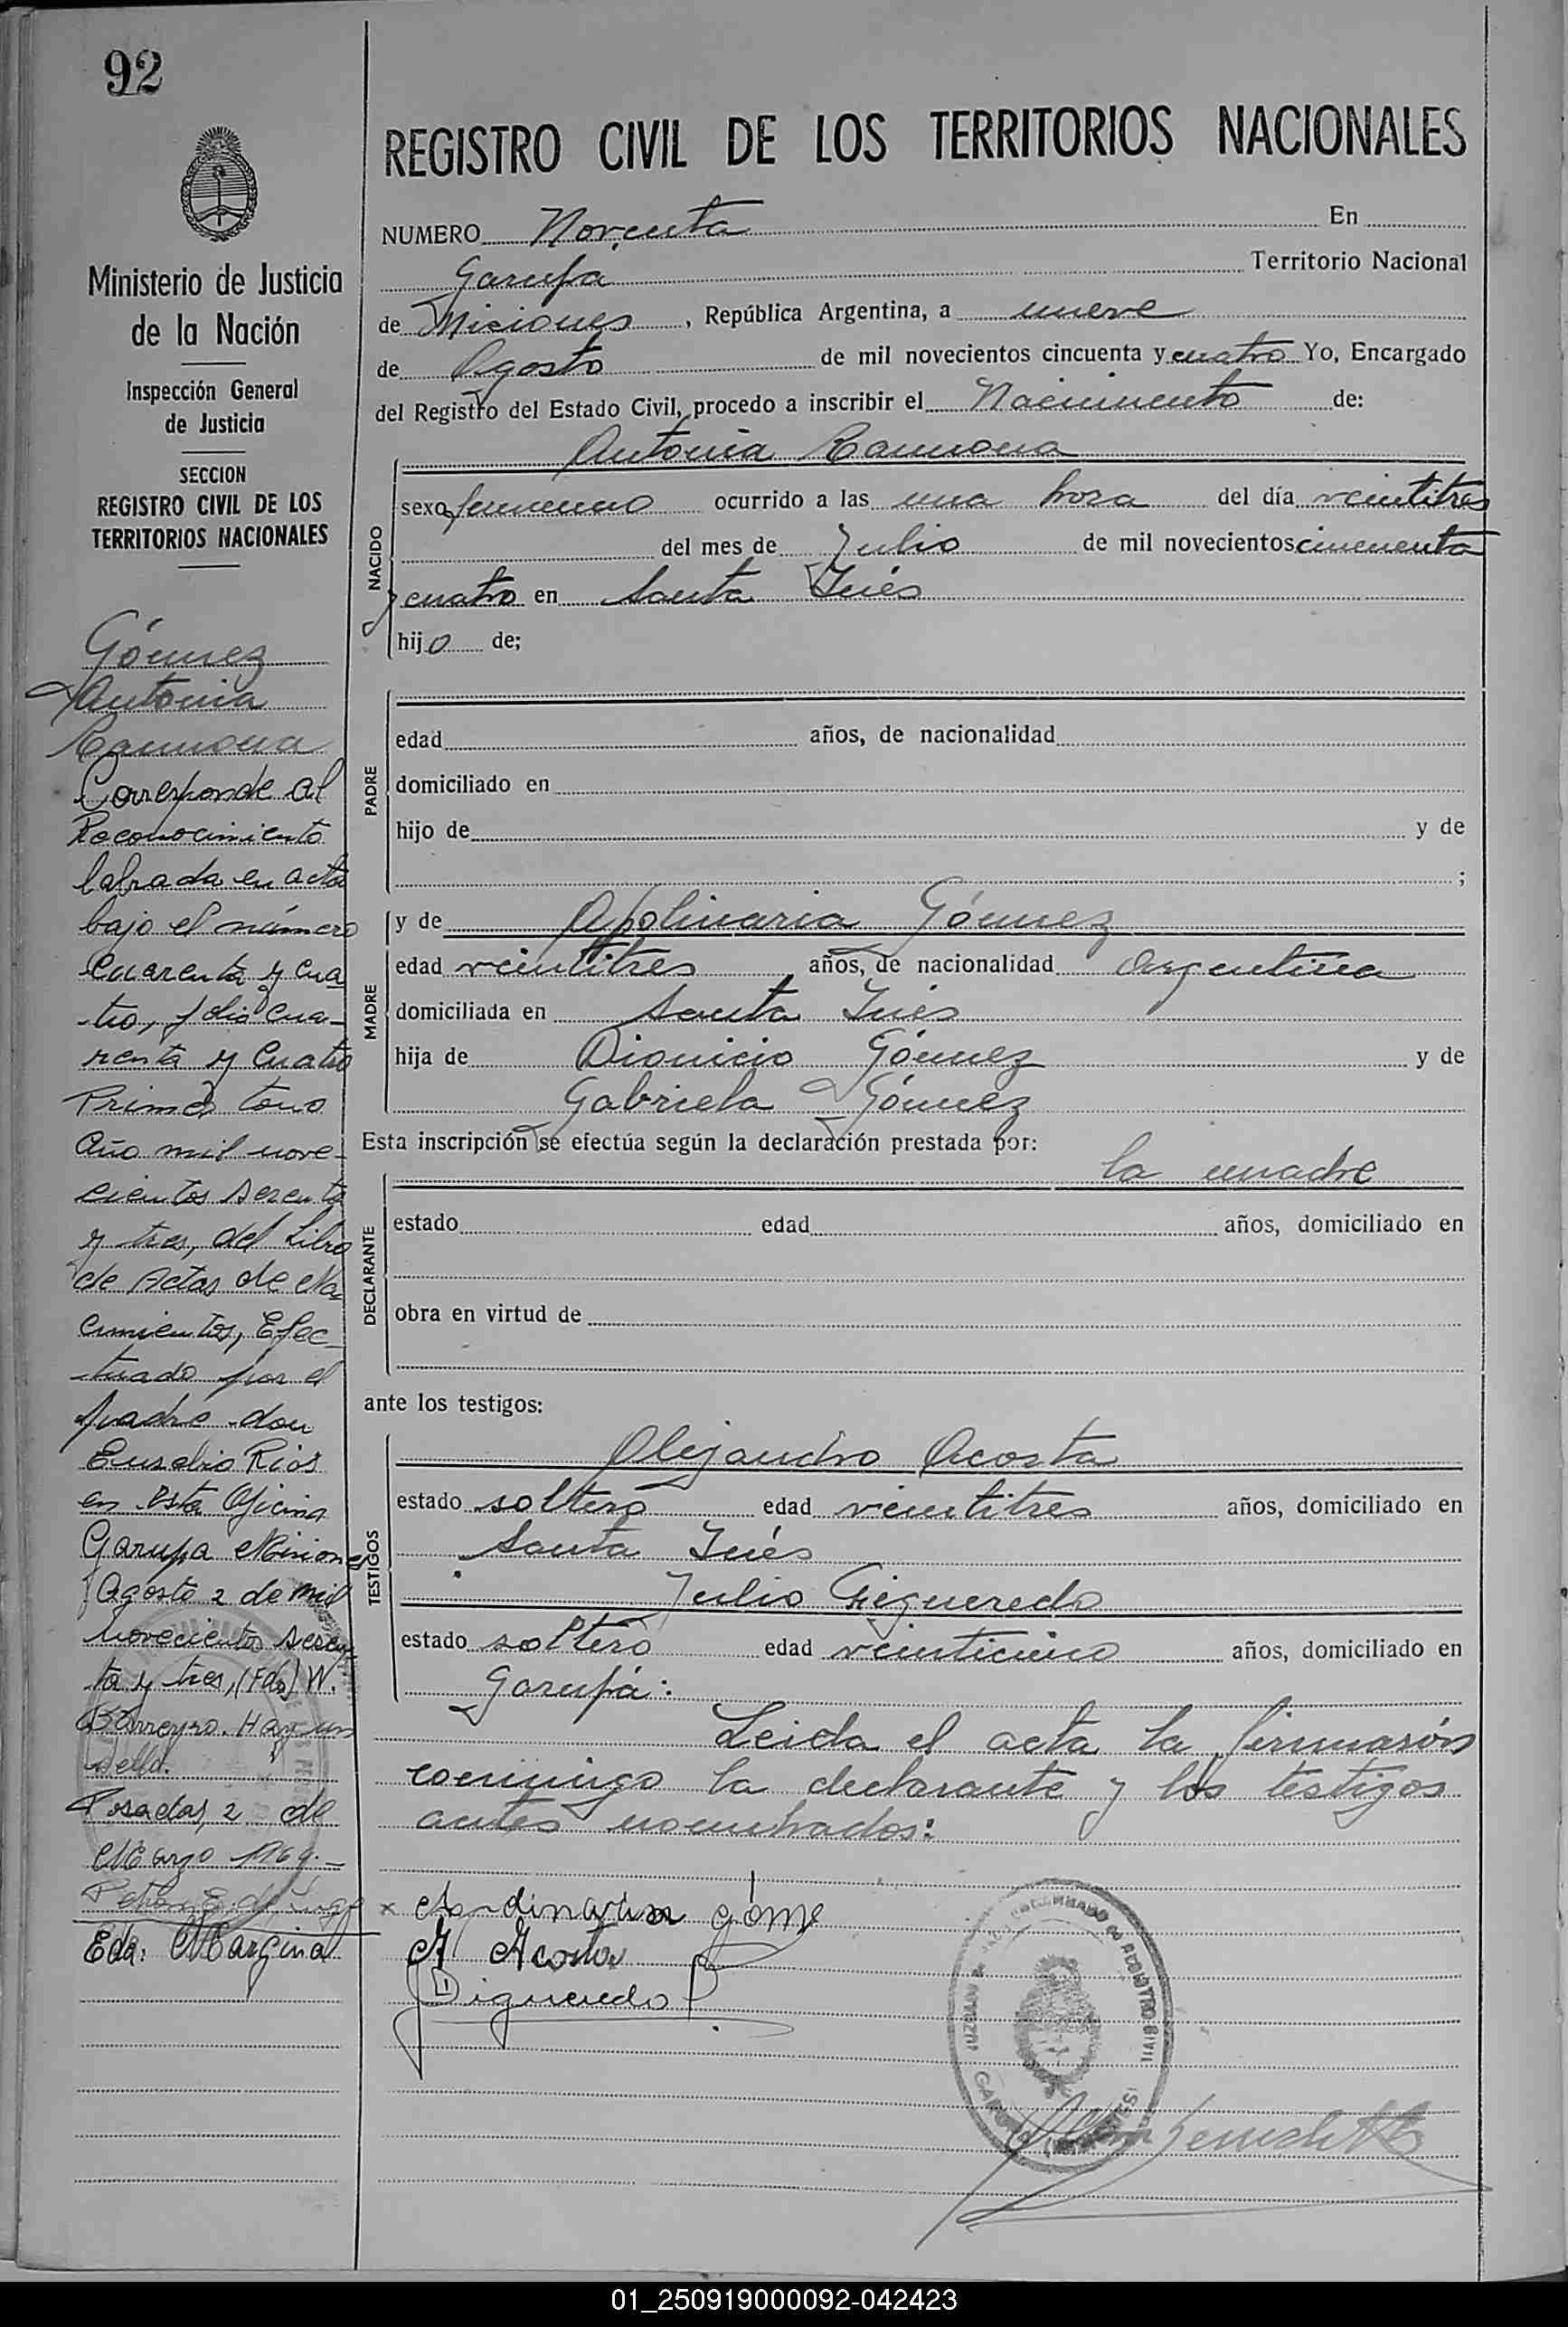 92
Ministerio de Justicia
de la Nación
Inspección General
de Justicia
SECCION
REGISTRO CIVIL DE LOS
TERRITORIOS NACIONALES
Gómez
Antonia
Ramona
Corresponde al
Reconocimiento
labrada en acta
bajo el número
Cuarenta y cua
-tro, folio cua-
renta y Cuatro
Primer tomo
Año mil nove-
cientos sesenta
y tres, del Libro
de Actas de Na-
cimientos, Efec-
tuado por el
padre don
Eusebio Rios
en esta Oficina
Garupa Misiones
Agosto 2 de mil
novecientos sesen
ta y tres, (Fdo) W.
Barreyro. Hay un
sello.
Posadas, 2 de
Marzo 1969.-
Edo: Marginal
REGISTRO CIVIL DE LOS TERRITORIOS NACIONALES
NUMERO Noventa En
Garupa Territorio Nacional
de Misiones, República Argentina, a nueve
de Agosto de mil novecientos cincuenta y cuatro Yo, Encargado
del Registro del Estado Civil, procedo a inscribir el Nacimiento de:
NACIDO
Antonia Ramona
sexo femenino ocurrido a las una hora del día veintitres
del mes de Julio de mil novecientos cincuenta
y cuatro en Santa Inés
hijo de;
PADRE
edad años, de nacionalidad
domiciliado en
hijo de y de
;
MADRE
y de Apolinaria Gómez
edad veintitres años, de nacionalidad argentina
domiciliada en Santa Inés
hija de Dionicio Gómez y de
Gabriela Gómez
Esta inscripción se efectúa según la declaración prestada por:
DECLARANTE
la madre
estado edad años, domiciliado en
obra en virtud de
ante los testigos:
TESTIGOS
Alejandro Acosta
estado soltero edad veintitres años, domiciliado en
Santa Inés
Julio Figueredo
estado soltero edad veinticinco años, domiciliado en
Garupá:
Leida el acta la firmarón
conmigo la declarante y los testigos
antes nombrados:
x góme
A Acosta
Figueredo
01_250919000092-042423